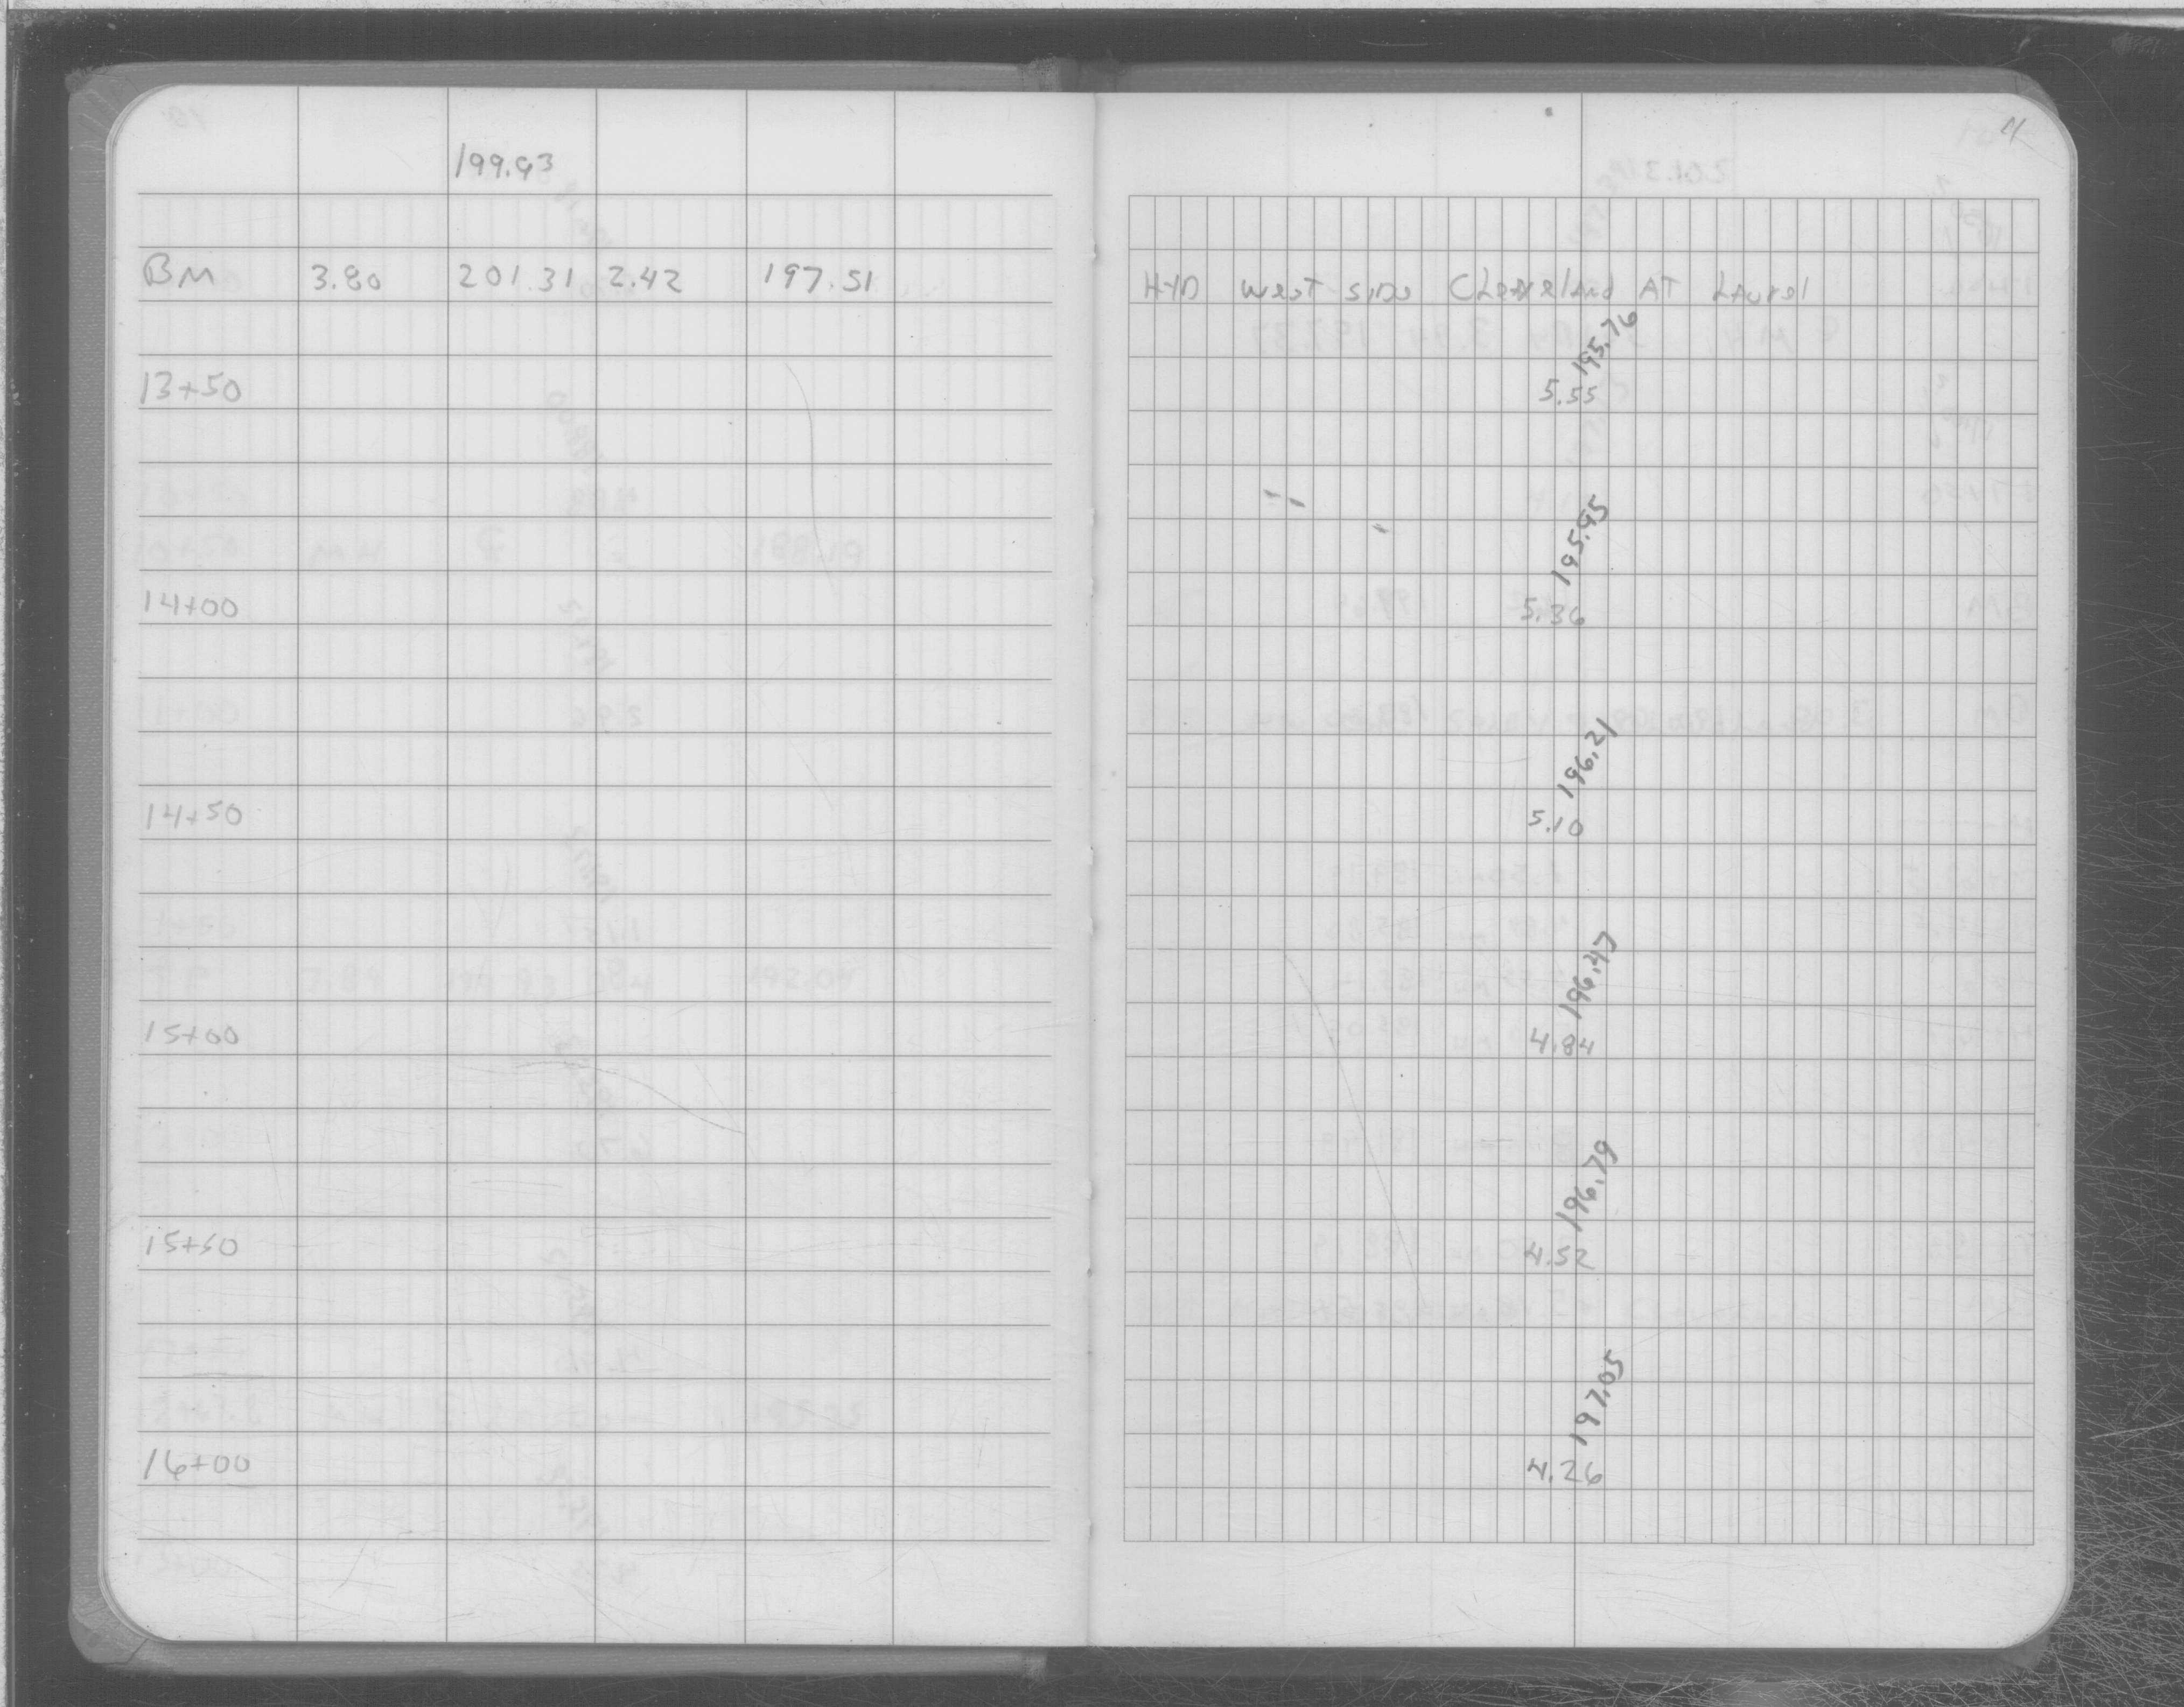 11
199.93
BM 3.80 201.31 2.42 197.51 HYD West Side Cleveland AT Laurel
195.76
13+50 5.55
195.95
14+00 5.36
196.21
14+50 5.10
196.47
15+00 4.84
196.79
15+50 4.52
197.05
16+00 4.26